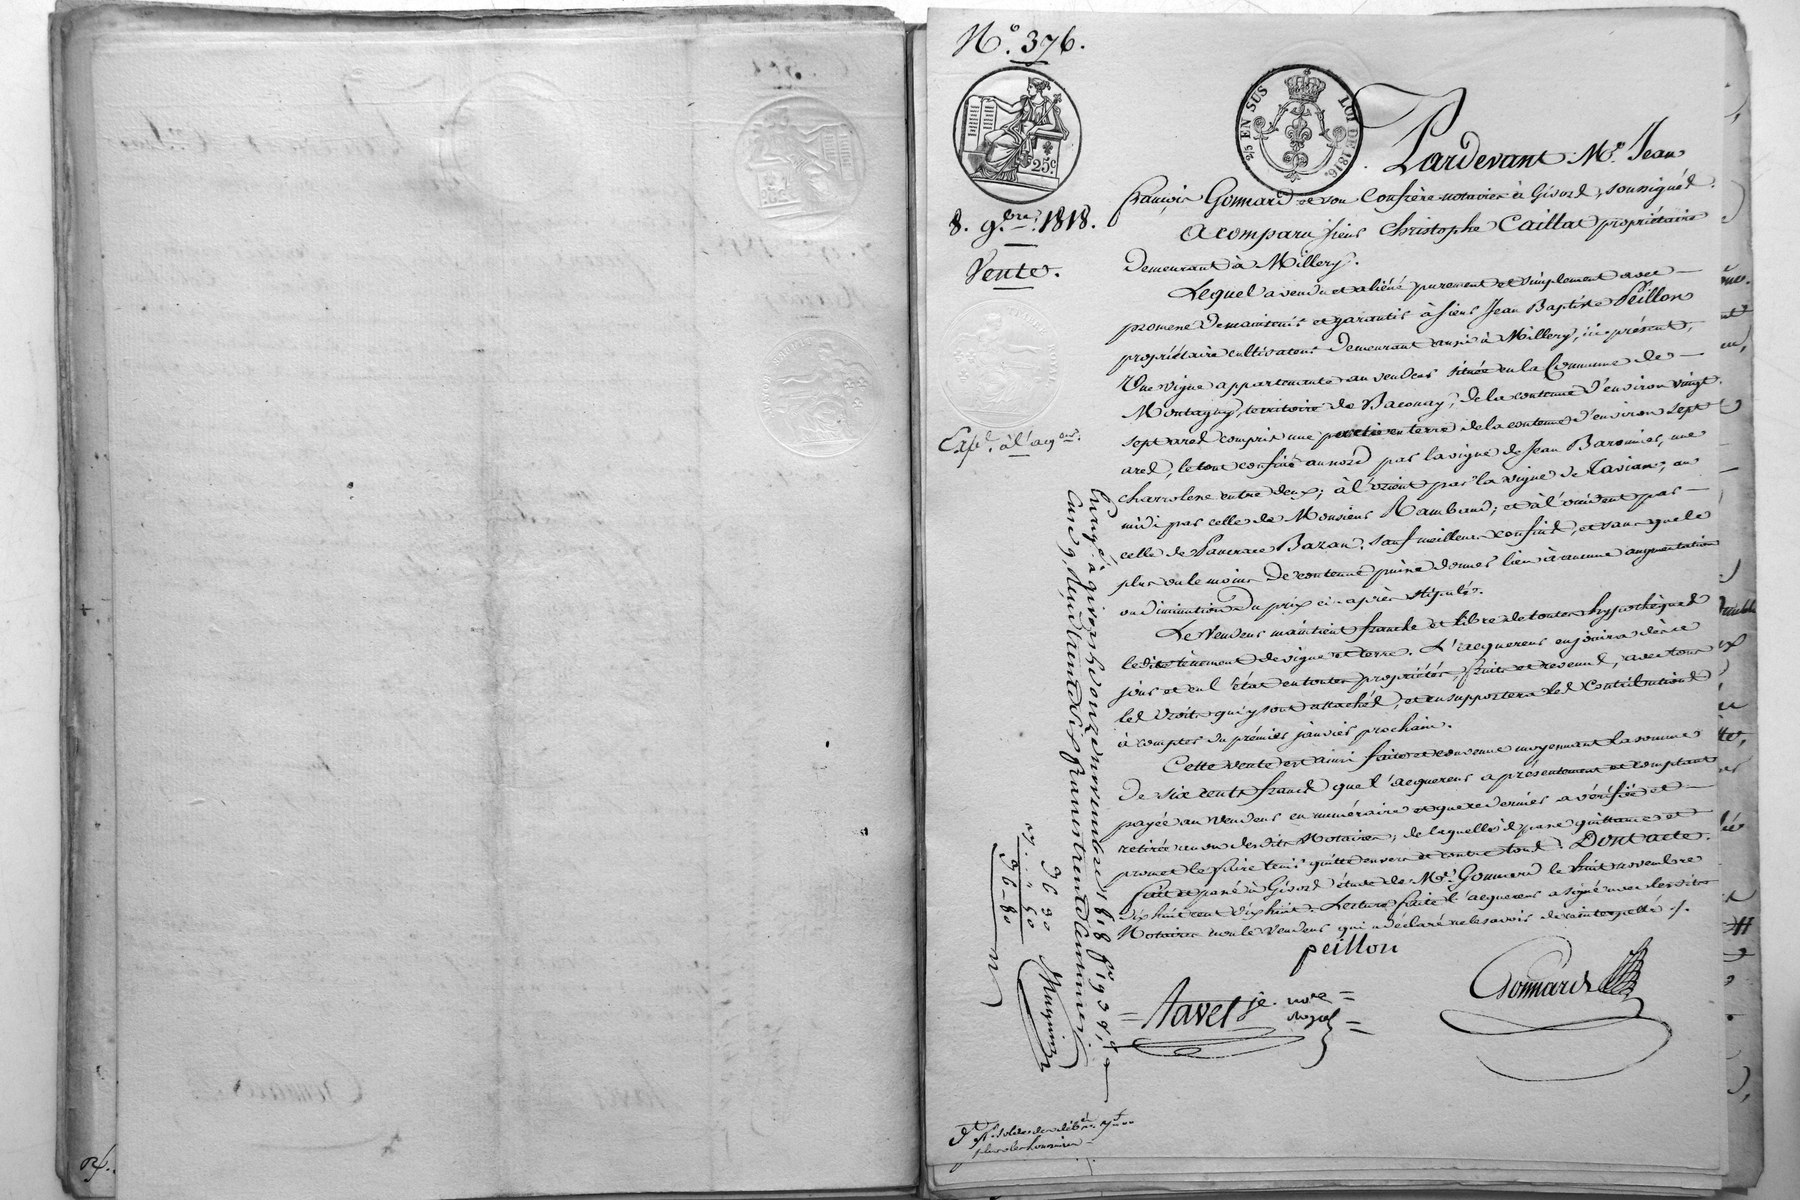 N.o 376.
25c.
2/5 EN SUS LOI DE 1816.
8. 9.bre 1818.
Vente.
Exp.é à l'acq.eur.
Pardevant M.e Jean
françois Gonnard et son Confrère notaires à Givors, soussignés.
A comparu sieur Christophe Caillat propriétaire
demeurant à Millery.
Lequel a vendu et aliéné purement et simplement avec
promesse de maintenir et garantir à sieur Jean Baptiste Peillon
propriétaire cultivateur demeurant aussi à Millery, ici présent,
Une vigne appartenante au vendeur située en la Commune de
Montagny, territoire de Baconay, de la contenue d'environ vingt
sept ares compris une partie en terre de la contenue d'environ sept
ares, le tout confiné au nord par la vigne de Jean Baronnier, une
charrolerie entre deux; à l'orient par la vigne de Tavian; au
midi par celle de Monsieur Rambaud; et à l'occident par
celle de Pancrace Bazan, sauf meilleurs confins, et sans que le
plus ou le moins de contenue puisse donner lieu à aucune augmentation
ou diminution du prix ci-après stipulé.
Le Vendeur maintient franche et libre de toutes hypothèques
ledit tènement de vigne et terre. L'acquereur en jouira dès ce
jour et en l'état en toutes propriétés, fruits et revenus, avec tous
les droits qui y sont attachés, et en supportera les contributions
à compter du prémier janvier prochain.
Cette vente est ainsi faite et convenue moyennant la somme
de six cents francs que l'acquereur a présentement et comptant
payée au Vendeur en numéraire et que ce dernier a vérifiée et
retirée au vu desdits Notaires, de laquelle il passe quittance et
promet le faire tenir quitte envers et contre tous. Dont acte.
fait et passé à Givors étude de M.e Gonnard le huit novembre
dix huit cent dix huit. Lecture faite l'acquereur a signé avec lesdits
Notaires non le Vendeur qui a déclaré ne le savoir de ce interpellé ./.
peillon
Tavel je. nore
royal
Gonnard
Enregé à givors le onze novembre 1818 fo 193 Ro
36 30
50
36-80